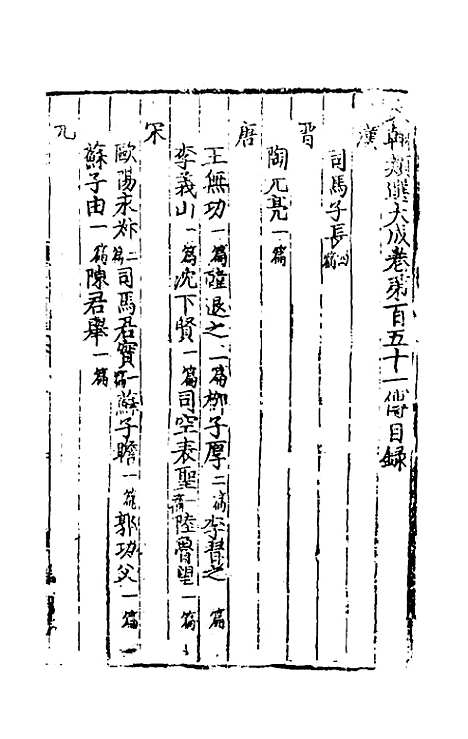 朝類選大成卷第百五十一傳目錄
漢
司馬子長四篇
晋
陶元亮一篇
唐
王無功一篇 陸退之二篇 柳子厚二篇 李習之 篇
李義山一篇 沈下賢一篇 司空表聖一篇 陸魯望一篇
宋
歐陽永叔二篇 司馬君實一篇 蘇子瞻一篇 郭功父一篇
蘇子由一篇 陳君舉一篇
元